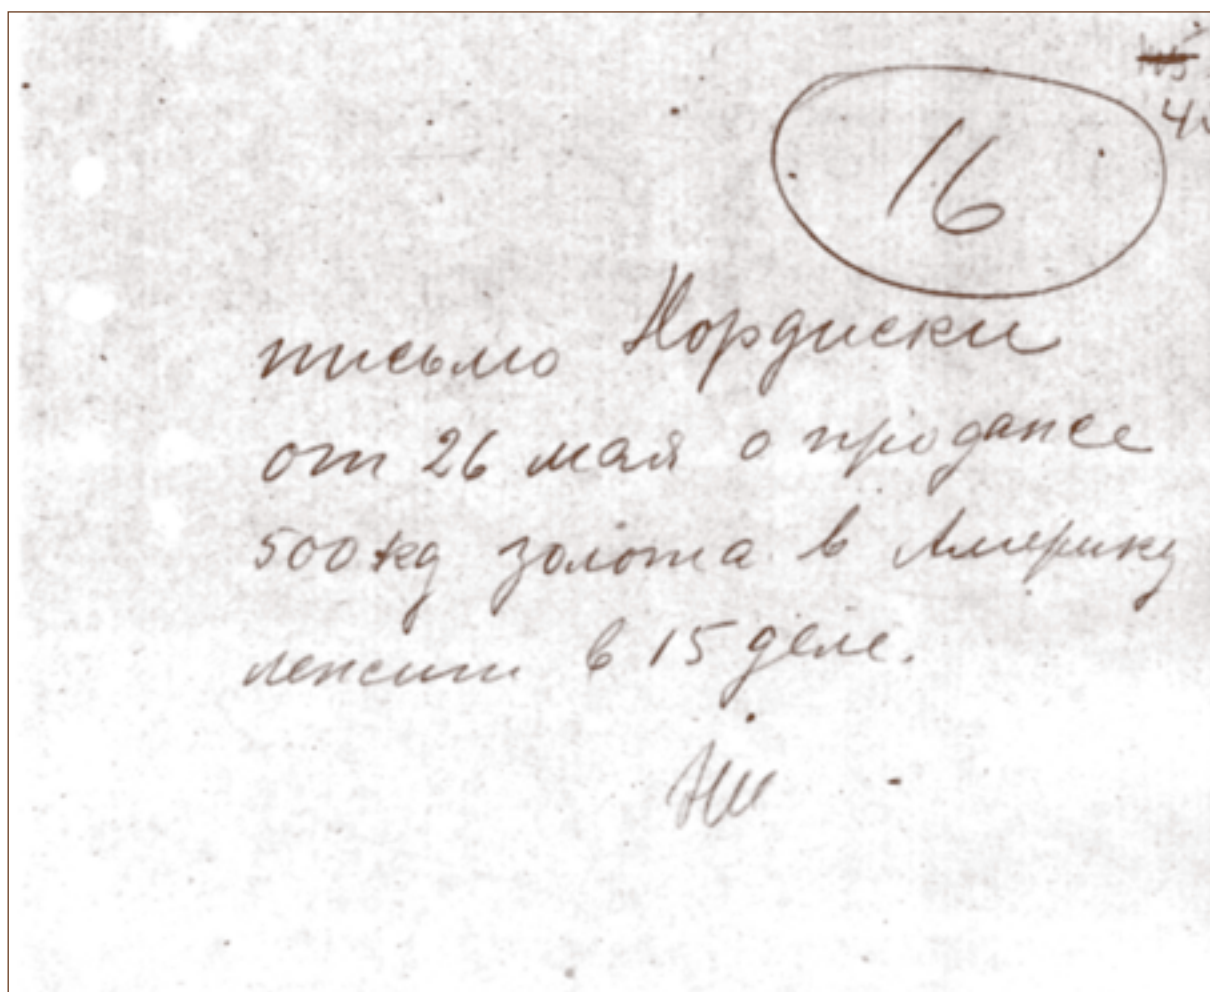 16
письмо Нордиски
от 26 мая о продаже
500 кг золота в Америку
лежит в 15 деле.